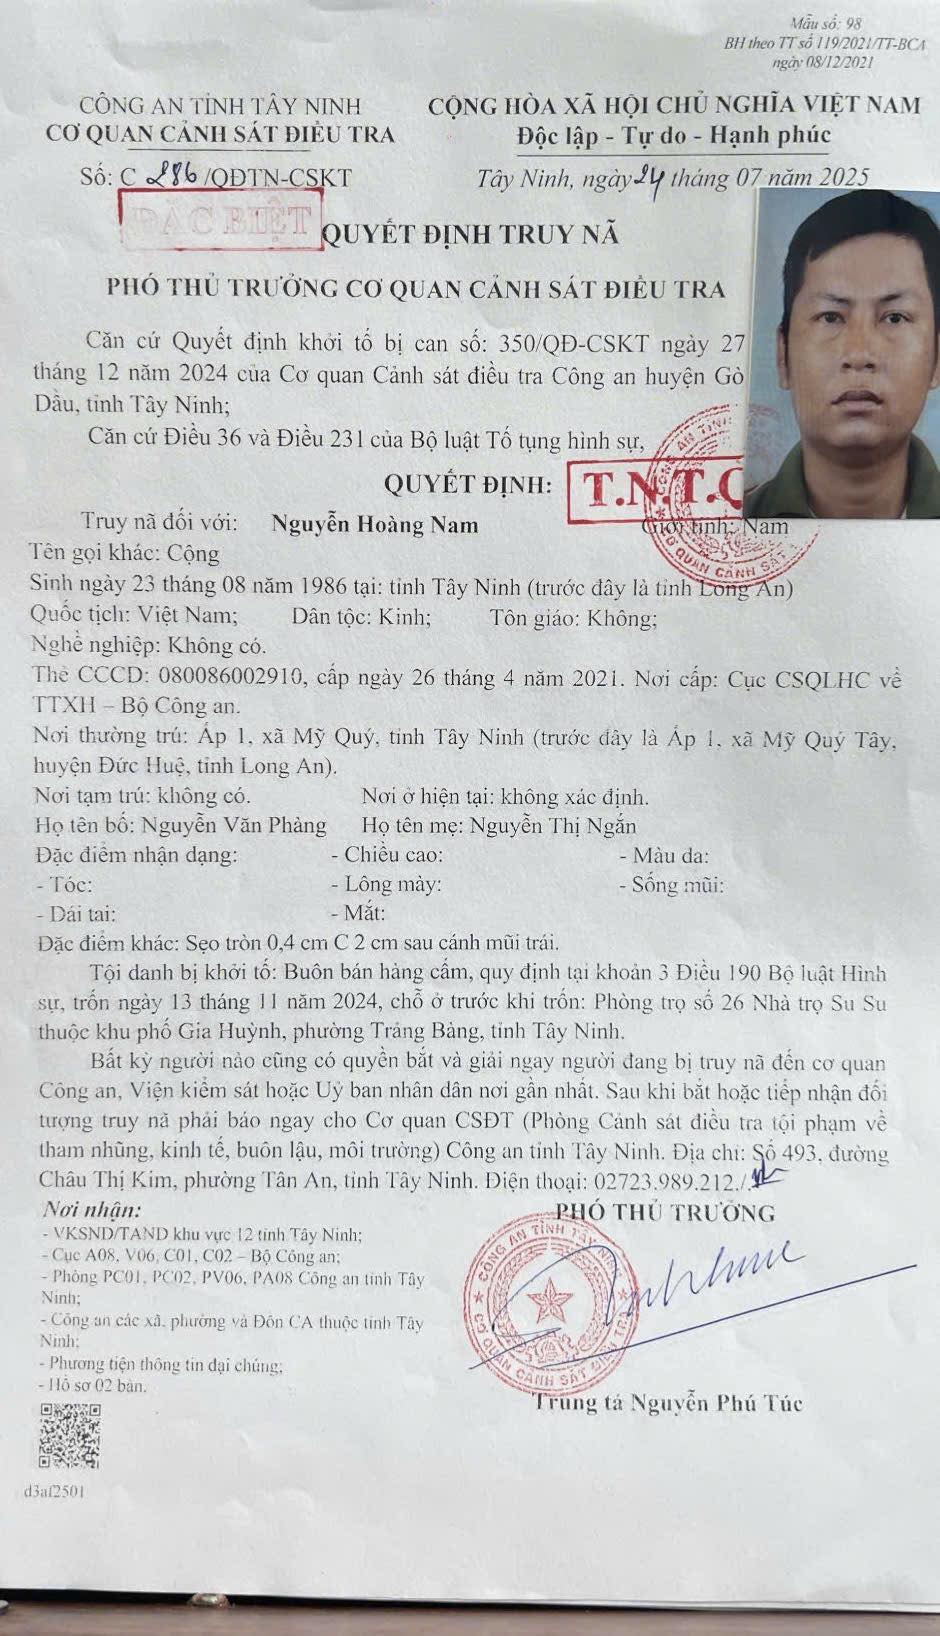 Mẫu số: 98
BH theo TT số 119/2021/TT-BCA
ngày 08/12/2021
CÔNG AN TỈNH TÂY NINH
CƠ QUAN CẢNH SÁT ĐIỀU TRA
CỘNG HÒA XÃ HỘI CHỦ NGHĨA VIỆT NAM
Độc lập - Tự do - Hạnh phúc
Số: C 286/QĐTN-CSKT
Tây Ninh, ngày 24 tháng 07 năm 2025
ĐẶC BIỆT
QUYẾT ĐỊNH TRUY NÃ
PHÓ THỦ TRƯỞNG CƠ QUAN CẢNH SÁT ĐIỀU TRA
Căn cứ Quyết định khởi tố bị can số: 350/QĐ-CSKT ngày 27
tháng 12 năm 2024 của Cơ quan Cảnh sát điều tra Công an huyện Gò
Dầu, tỉnh Tây Ninh;
Căn cứ Điều 36 và Điều 231 của Bộ luật Tố tụng hình sự,
QUYẾT ĐỊNH:
T.N.T.C
Truy nã đối với: Nguyễn Hoàng Nam Giới tính: Nam
CƠ QUAN CẢNH SÁT
Tên gọi khác: Cộng
Sinh ngày 23 tháng 08 năm 1986 tại: tỉnh Tây Ninh (trước đây là tỉnh Long An)
Quốc tịch: Việt Nam; Dân tộc: Kinh; Tôn giáo: Không;
Nghề nghiệp: Không có.
Thẻ CCCD: 080086002910, cấp ngày 26 tháng 4 năm 2021. Nơi cấp: Cục CSQLHC về
TTXH – Bộ Công an.
Nơi thường trú: Ấp 1, xã Mỹ Quý, tỉnh Tây Ninh (trước đây là Ấp 1, xã Mỹ Quý Tây,
huyện Đức Huệ, tỉnh Long An).
Nơi tạm trú: không có. Nơi ở hiện tại: không xác định.
Họ tên bố: Nguyễn Văn Phàng Họ tên mẹ: Nguyễn Thị Ngắn
Đặc điểm nhận dạng: - Chiều cao: - Màu da:
- Tóc: - Lông mày: - Sống mũi:
- Dái tai: - Mắt:
Đặc điểm khác: Sẹo tròn 0,4 cm C 2 cm sau cánh mũi trái.
Tội danh bị khởi tố: Buôn bán hàng cấm, quy định tại khoản 3 Điều 190 Bộ luật Hình
sự, trốn ngày 13 tháng 11 năm 2024, chỗ ở trước khi trốn: Phòng trọ số 26 Nhà trọ Su Su
thuộc khu phố Gia Huỳnh, phường Trảng Bàng, tỉnh Tây Ninh.
Bất kỳ người nào cũng có quyền bắt và giải ngay người đang bị truy nã đến cơ quan
Công an, Viện kiểm sát hoặc Uỷ ban nhân dân nơi gần nhất. Sau khi bắt hoặc tiếp nhận đối
tượng truy nã phải báo ngay cho Cơ quan CSĐT (Phòng Cảnh sát điều tra tội phạm về
tham nhũng, kinh tế, buôn lậu, môi trường) Công an tỉnh Tây Ninh. Địa chỉ: Số 493, đường
Châu Thị Kim, phường Tân An, tỉnh Tây Ninh. Điện thoại: 02723.989.212./.
Nơi nhận:
- VKSND/TAND khu vực 12 tỉnh Tây Ninh;
- Cục A08, V06, C01, C02 – Bộ Công an;
- Phòng PC01, PC02, PV06, PA08 Công an tỉnh Tây
Ninh;
- Công an các xã, phường và Đồn CA thuộc tỉnh Tây
Ninh;
- Phương tiện thông tin đại chúng;
- Hồ sơ 02 bản.
PHÓ THỦ TRƯỞNG
CÔNG AN TỈNH TÂY NINH
CƠ QUAN CẢNH SÁT ĐIỀU TRA
Trung tá Nguyễn Phú Túc
d3af2501